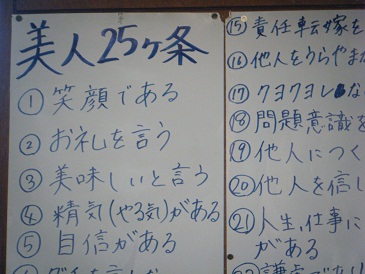 美人25ヶ条
① 笑顔である
② お礼を言う
③ 美味しいと言う
④ 精気(やる気)がある
⑤ 自信がある
⑮ 責任転嫁を
⑯ 他人をうらやま
⑰ クヨクヨしな
⑱ 問題意識を
⑲ 他人につく
⑳ 他人を信し
㉑ 人生、仕事に
がある